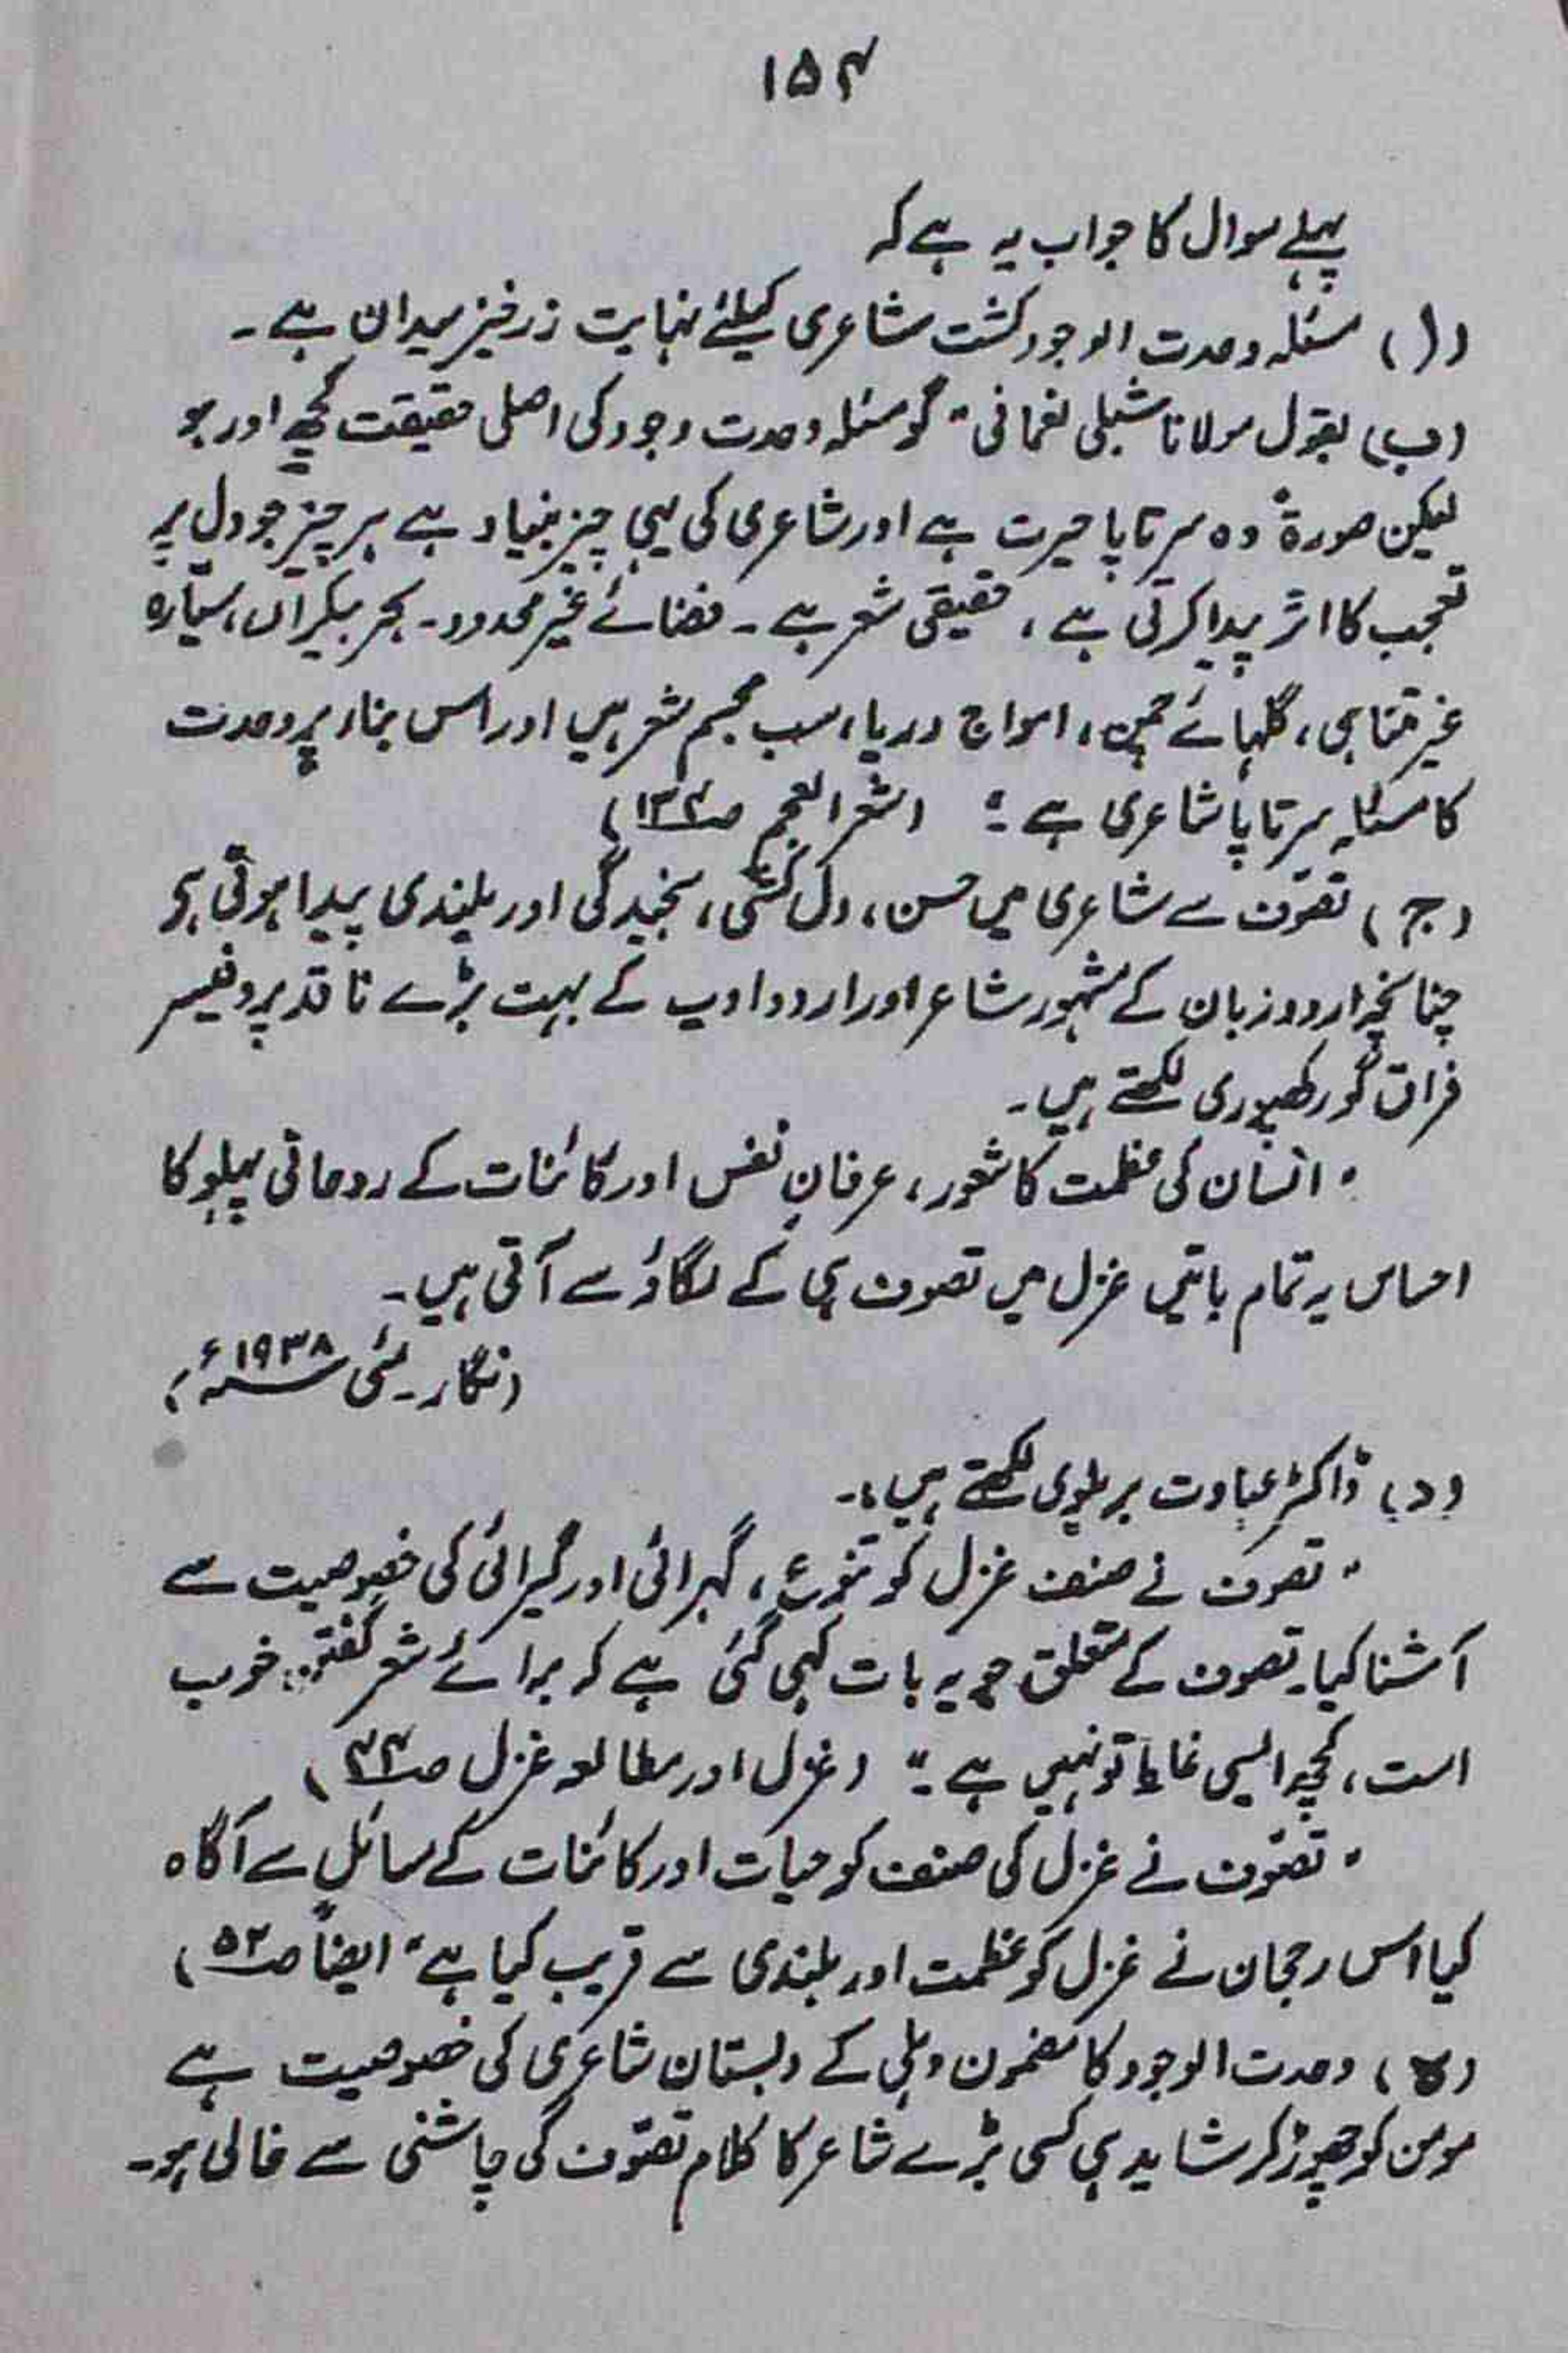 ۱۵۴
پہلے سوال کا جواب یہ ہے کہ
(ا) مسئلہ وحدت الوجود کشت شاعری کیلئے نہایت زرخیز میدان ہے ۔
(ب) بقول مولانا شبلی نعمانی " گو مسئلہ وحدت وجود کی اصلی حقیقت کچھ اور ہو
لیکن صورۃً وہ سرتاپا حیرت ہے اور شاعری کی یہی چیز بنیاد ہے ہر چیز جو دل پر
تعجب کا اثر پیدا کرتی ہے ، حقیقی شعر ہے ۔ فضائے غیر محدود ۔ بحر بیکراں ، سیّارہ
غیر متناہی ، گلہائے چمن ، امواج دریا ، سب مجسم شعر ہیں اور اس بناء پر وحدت
کا مسئلہ سرتاپا شاعری ہے ۔" (شعر العجم صـ ۱۳۴)
(ج) تصوّف سے شاعری میں حسن ، دل کشی ، سنجیدگی اور بلندی پیدا ہوتی ہی
چنانچہ اردو زبان کے مشہور شاعر اور اردو ادب کے بہت بڑے ناقد پروفیسر
فراق گورکھپوری لکھتے ہیں ۔
" انسان کی عظمت کا شعور ، عرفانِ نفس اور کائنات کے روحانی پہلو کا
احساس یہ تمام باتیں غزل میں تصوف ہی کے لگاؤ سے آتی ہیں ۔
(نگار ۔ مئی ۱۹۳۸ء)
(د) ڈاکٹر عبادت بریلوی لکھتے ہیں :۔
" تصوف نے صنف غزل کو تنوع ، گہرائی اور گیرائی کی خصوصیت سے
آشنا کیا ۔ تصوف کے متعلق جو یہ بات کہی گئی ہے کہ برائے شعر گفتن خوب
است ، کچھ ایسی غلط تو نہیں ہے ۔" (غزل اور مطالعہ غزل صـ ۳۴)
" تصوّف نے غزل کی صنف کو حیات اور کائنات کے مسائل سے آگاہ
کیا اس رجحان نے غزل کو عظمت اور بلندی سے قریب کیا ہے " ایضاً صـ ۵۲)
(ہ) وحدت الوجود کا مضمون دہلی کے دبستان شاعری کی خصوصیت ہے
مومن کو چھوڑ کر شاید ہی کسی بڑے شاعر کا کلام تصوّف کی چاشنی سے خالی ہو ۔